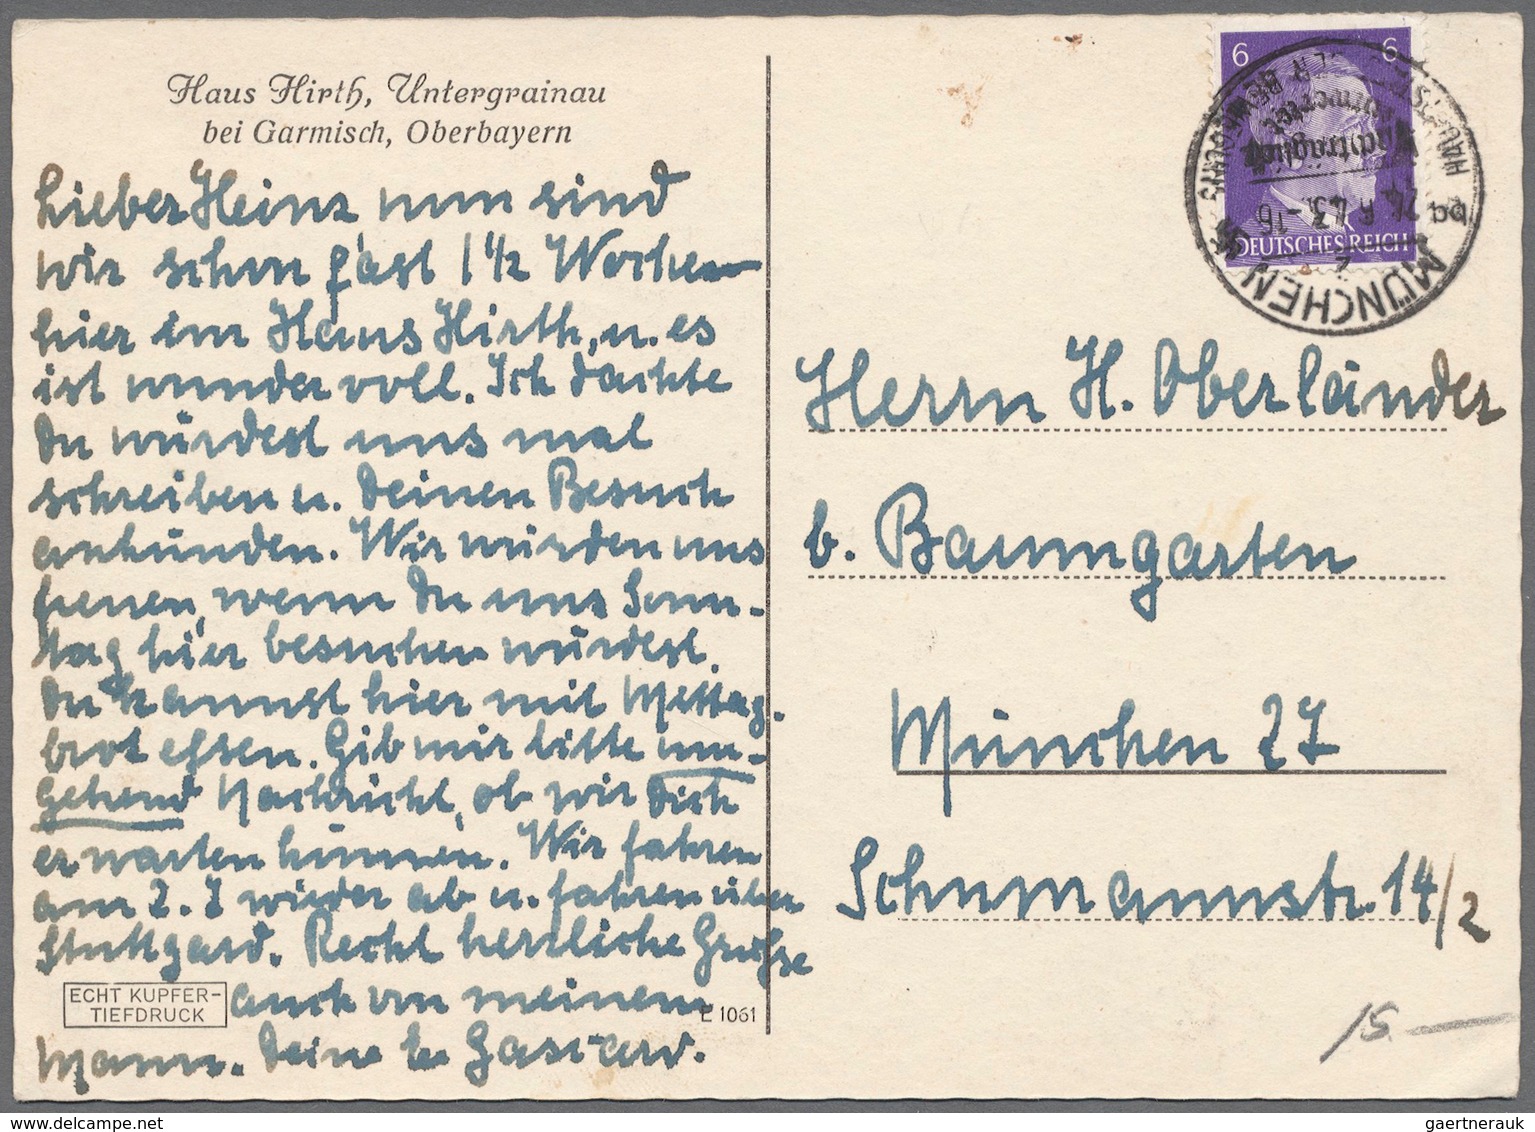 Haus Hirth, Untergrainau
bei Garmisch, Oberbayern
Lieber Heinz, nun sind
wir schon fast 1 1/2 Wochen
hier im Haus Hirth, u. es
ist wundervoll. Ich dachte
Du würdest uns mal
schreiben u. Deinen Besuch
ankünden. Wir würden uns
freuen, wenn Du uns Sonn-
tag hier besuchen würdest.
Du kannst hier mit Mettag-
brot essen. Gib mir bitte um-
gehend Nachricht, ob wir Dich
erwarten können. Wir fahren
am 2. 7 wieder ab u. fahren über
Stuttgard. Recht herzliche Grüsse
auch von meinem
Mann. Deine
ECHT KUPFER-
TIEFDRUCK
E 1061
6 6
nachträglich
entwertet
DEUTSCHES REICH
MÜNCHEN
HAUPTSTADT DER BEWEGUNG
24.6.43.-16
Herrn H. Oberländer
b. Baumgarten
München 27
Schumannstr. 14/2
15.—
gaertnerauk